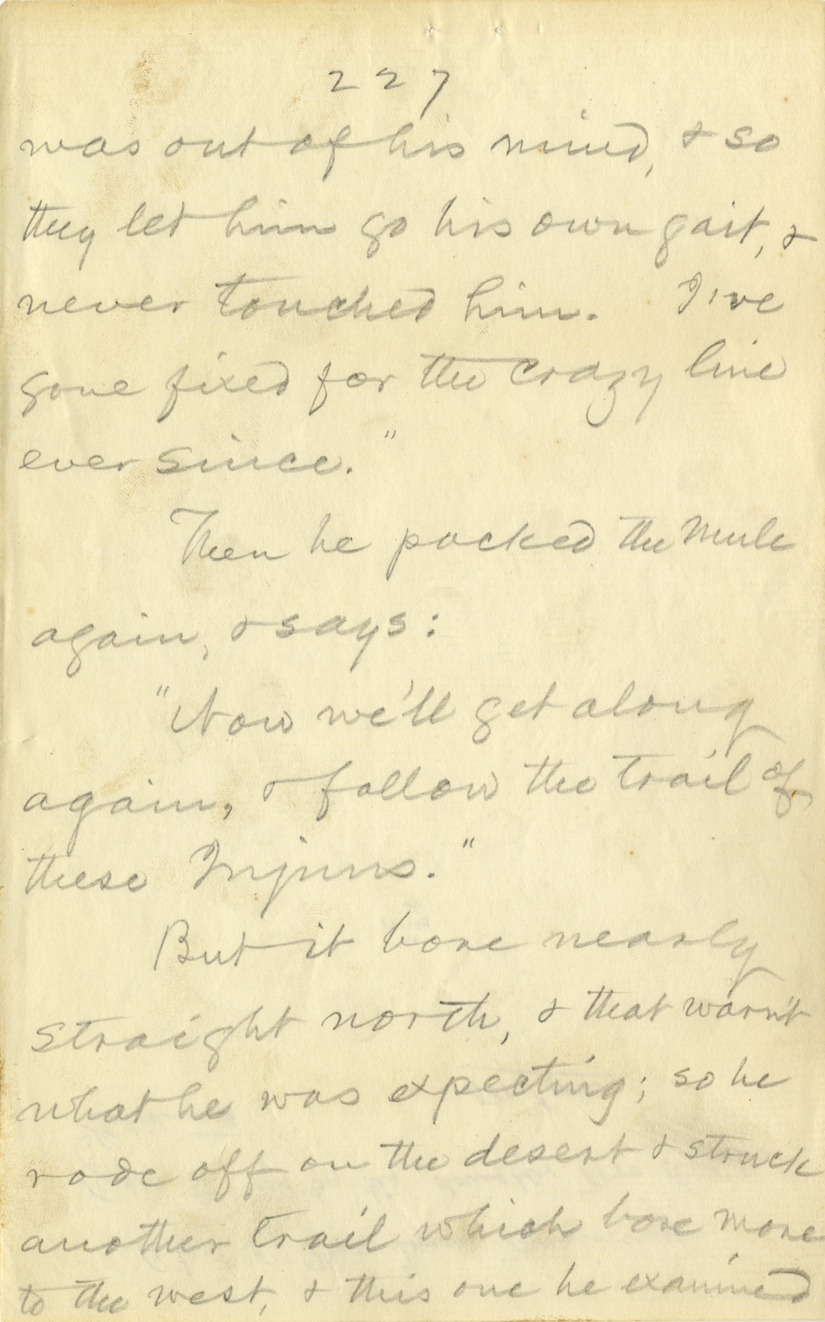 227
was out of his mind, & so
they let him go his own gait, &
never touched him. I've
gone fixed for the crazy line
ever since."
Then he packed the mule
again, & says:
"Now we'll get along
again, & follow the trail of
these Injuns."
But it bore nearly
straight north, & that warn't
what he was expecting; so he
rode off on the desert & struck
another trail which bore more
to the west, & this one he examined